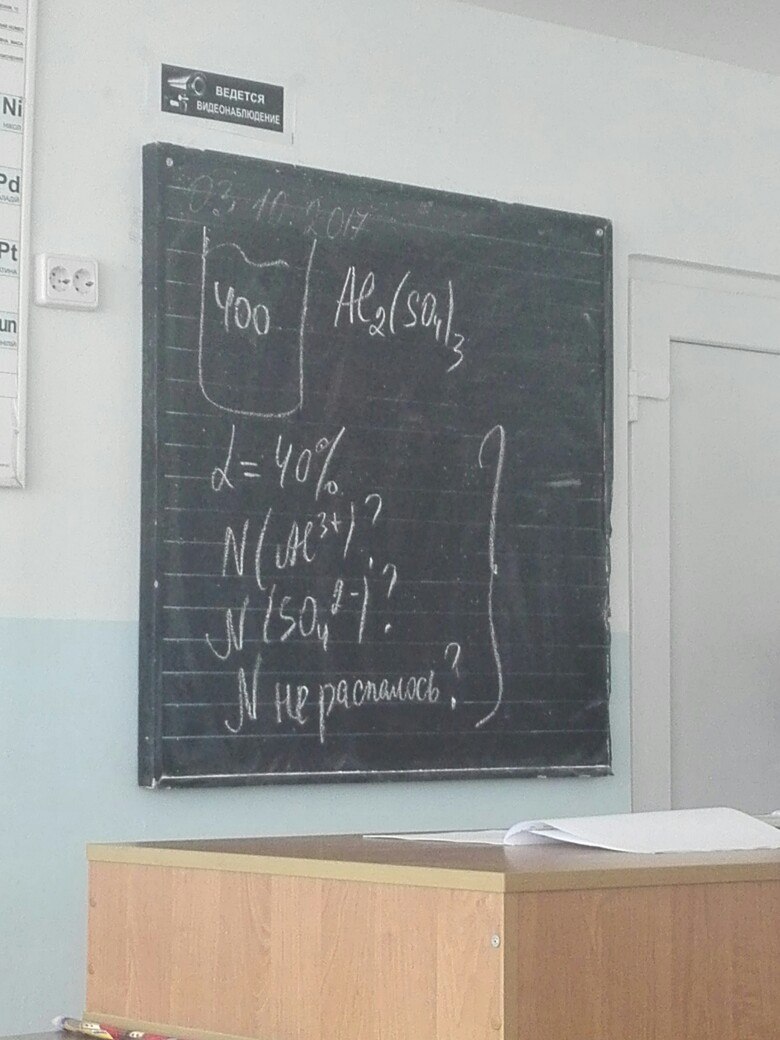 Ni
Pd
Pt
ВЕДЕТСЯ
ВИДЕОНАБЛЮДЕНИЕ
03.10.2017
400 Al₂(SO₄)₃
α = 40%
N(Al³⁺)?
N(SO₄²⁻)?
N не распалось?